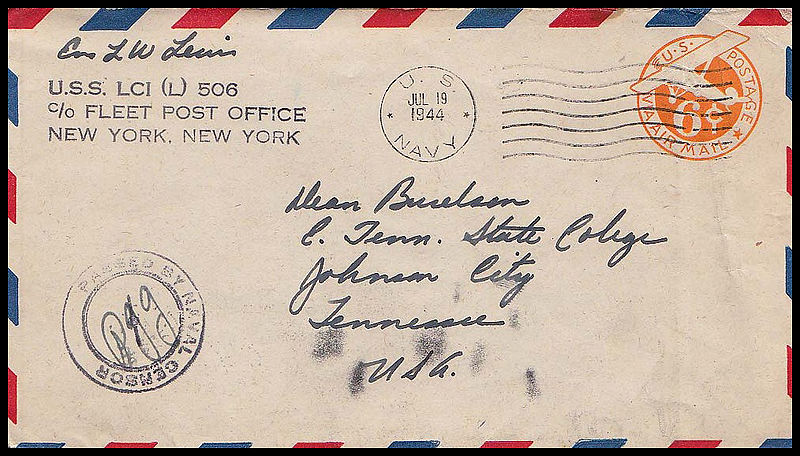 Ens L W Lewis
U.S.S. LCI (L) 506
c/o FLEET POST OFFICE
NEW YORK, NEW YORK
U. S.
JUL 19
1944
NAVY
U.S. POSTAGE
6¢
VIA AIR MAIL
Dean Buselson
E. Tenn. State College
Johnson City
Tennessee
USA.
PASSED BY NAVAL CENSOR